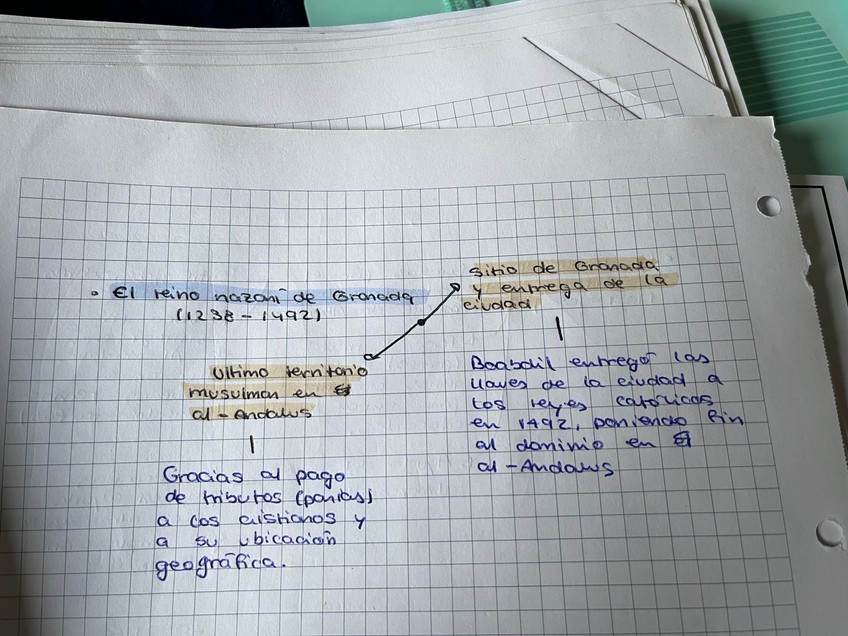 • El reino nazarí de Granada
(1238-1492)
Sitio de Granada
y entrega de la
ciudad
Ultimo territorio
musulman en
al-Andalus
Gracias al pago
de tributos (parias)
a los cristianos y
a su ubicación
geográfica.
Boabdil entregó las
llaves de la ciudad a
los reyes católicos
en 1492, poniendo fin
al dominio en
al-Andalus